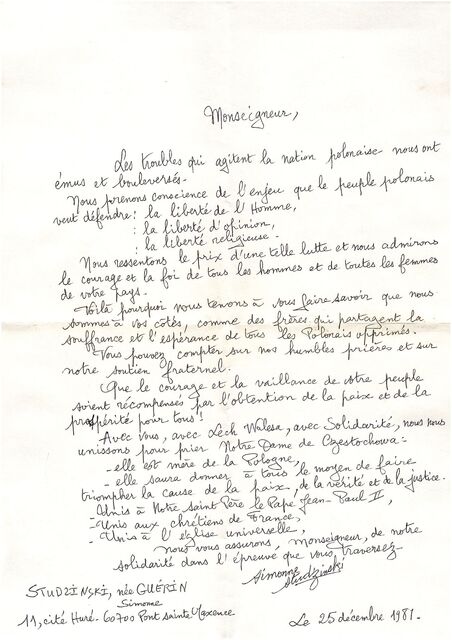 Monseigneur,
Les troubles qui agitent la nation polonaise nous ont
émus et bouleversés.
Nous prenons conscience de l'enjeu que le peuple polonais
veut défendre : la liberté de l'Homme,
: la liberté d'opinion,
: la liberté religieuse.
Nous ressentons le prix d'une telle lutte et nous admirons
le courage et la foi de tous les hommes et de toutes les femmes
de votre pays.
Voilà pourquoi nous tenons à vous faire savoir que nous
sommes à vos côtés, comme des frères qui partagent la
souffrance et l'espérance de tous les Polonais opprimés.
Vous pouvez compter sur nos humbles prières et sur
notre soutien fraternel.
Que le courage et la vaillance de votre peuple
soient récompensés par l'obtention de la paix et de la
prospérité pour tous !
Avec vous, avec Lech Walesa, avec Solidarité, nous nous
unissons pour prier Notre Dame de Czestochowa :
- elle est mère de la Pologne,
- elle saura donner à tous le moyen de faire
triompher la cause de la paix, de la vérité et de la justice.
- Unis à Notre Saint Père le Pape Jean-Paul II,
- Unis aux chrétiens de France,
- Unis à l'église universelle,
nous vous assurons, Monseigneur, de notre
solidarité dans l'épreuve que vous traversez.
Simonne
Studzinski
STUDZINSKI, née GUÉRIN
Simonne
11, cité Huré. 60700 Pont Sainte Maxence
Le 25 décembre 1981.